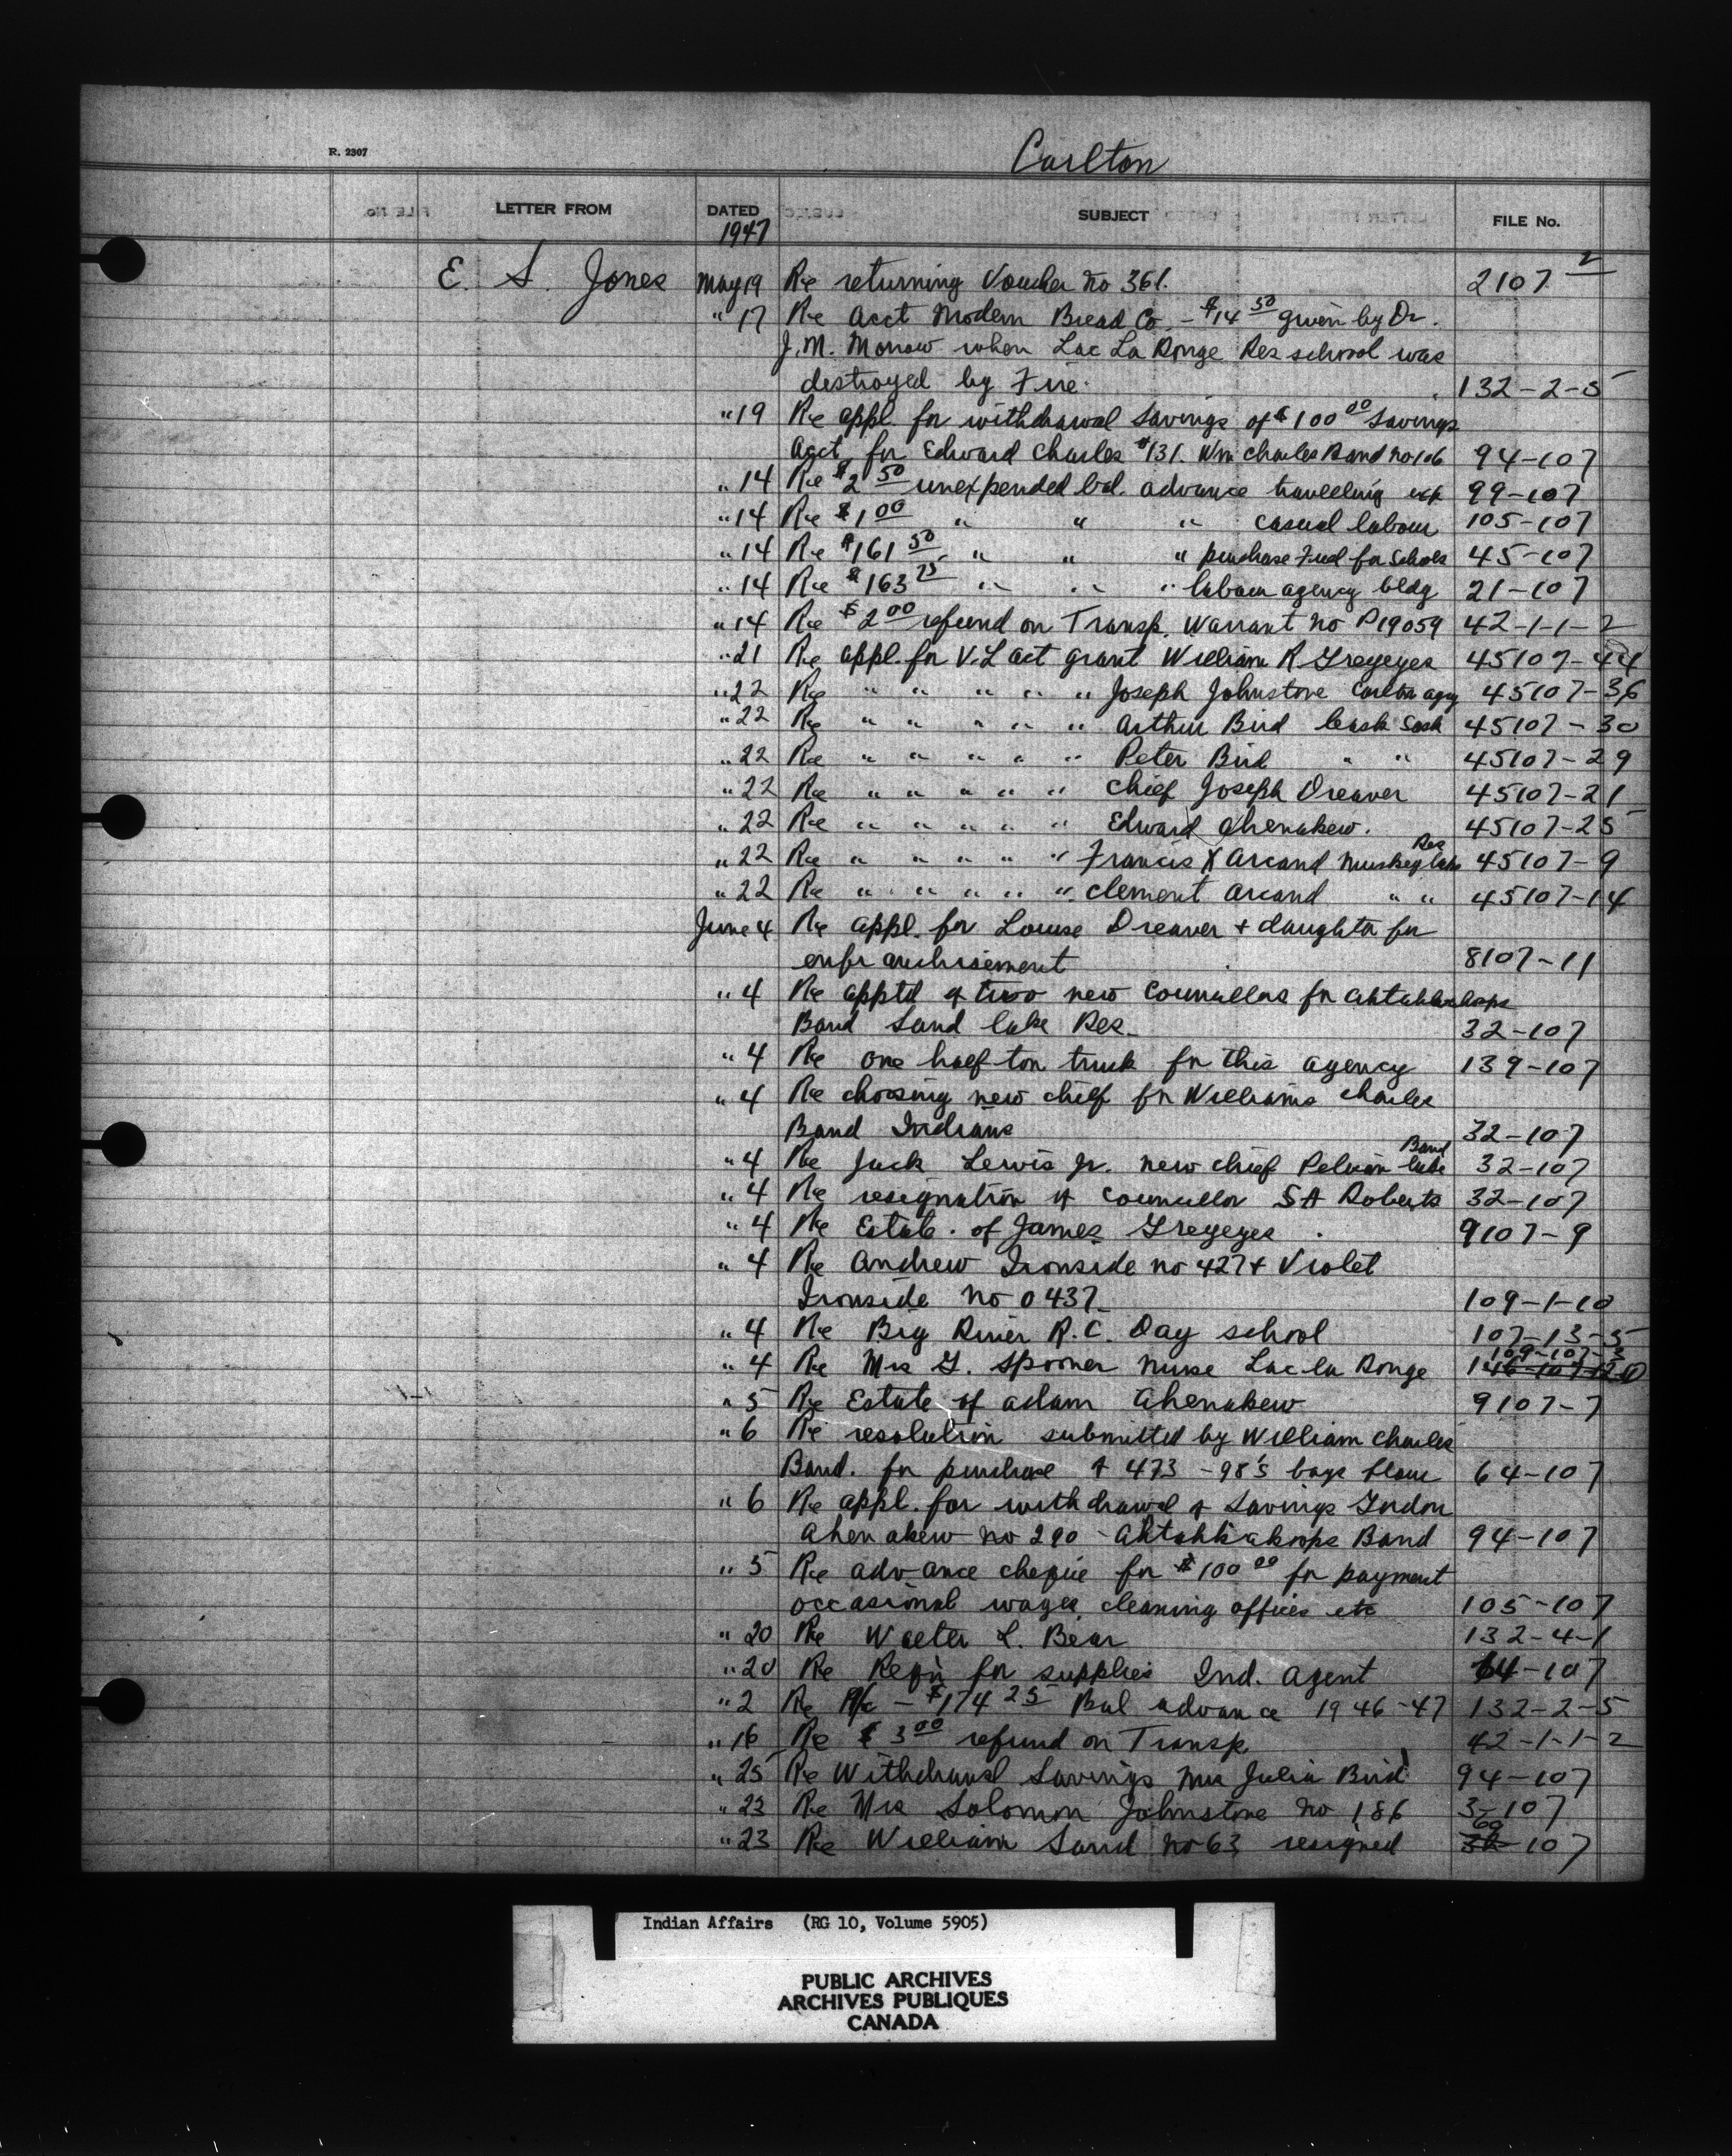 R. 2307
Carlton
LETTER FROM DATED SUBJECT FILE No.
1947
E. S. Jones May 19 Re returning Voucher no 361. 2107 2
" 17 Re Acct Modern Bread Co. - $14 50 given by Dr.
J. M. Morrow when Lac La Ronge Res school was
destroyed by Fire. 132-2-5
" 19 Re appl. for withdrawal savings of $100 00 Savings
Acct. for Edward Charles #131. Wm Charles Band no 106 94-107
" 14 Re $2 50 unexpended bal. advance travelling exp 99-107
" 14 Re $1 00 " " " casual labour 105-107
" 14 Re $161 50 " " " purchase Fuel for Schools 45-107
" 14 Re $163 75 " " " labour agency bldg 21-107
" 14 Re $2 00 refund on Transp. Warrant no P19059 42-1-1-2
" 21 Re appl. for V.L act grant William R Greyeyes 45107-44
" 22 Re " " " " " Joseph Johnstone Carlton agy 45107-36
" 22 Re " " " " " Arthur Bird Leask Sask 45107-30
" 22 Re " " " " " Peter Bird " " 45107-29
" 22 Re " " " " " Chief Joseph Dreaver 45107-21
" 22 Re " " " " " Edward Ahenakew. 45107-25
" 22 Re " " " " " Francis X Arcand Muskeg Lake Res 45107-9
" 22 Re " " " " " Clement Arcand " " 45107-14
June 4 Re appl. for Louise Dreaver + daughter for
enfranchisement 8107-11
" 4 Re apptd of two new Councillors for Ahtahkakoops
Band Sand Lake Res. 32-107
" 4 Re one half ton truck for this agency 139-107
" 4 Re choosing new chief for Williams Charles
Band Indians 32-107
" 4 Re Jack Lewis Jr. new chief Pelican Lake Band 32-107
" 4 Re resignation of Councillor SA Roberts 32-107
" 4 Re Estate of James Greyeyes 9107-9
" 4 Re Andrew Ironside no 427 + Violet
Ironside no 0437 109-1-10
" 4 Re Big River R.C. Day school 107-13-5
" 4 Re Mrs G. Spooner Nurse Lac la Ronge 109-107-3
" 5 Re Estate of Adam Ahenakew 9107-7
" 6 Re resolution submitted by William Charles
Band. for purchase of 473 - 98's bags flour 64-107
" 6 Re appl. for withdrawal of Savings Gordon
Ahenakew no 290 - Ahtahkakoops Band 94-107
" 5 Re advance cheque for $100 00 for payment
occasional wages cleaning offices etc 105-107
" 20 Re Walter L. Bear 132-4-1
" 20 Re Reqn for supplies Ind. Agent 64-107
" 2 Re A/c - $174 25 Bal advance 1946-47 132-2-5
" 16 Re $3 00 refund on Transp. 42-1-1-2
" 25 Re Withdrawal Savings Mrs Julia Bird 94-107
" 23 Re Mrs Solomon Johnstone no 186 3-107
" 23 Re William Sand no 63 resigned 60 107
Indian Affairs (RG 10, Volume 5905)
PUBLIC ARCHIVES
ARCHIVES PUBLIQUES
CANADA